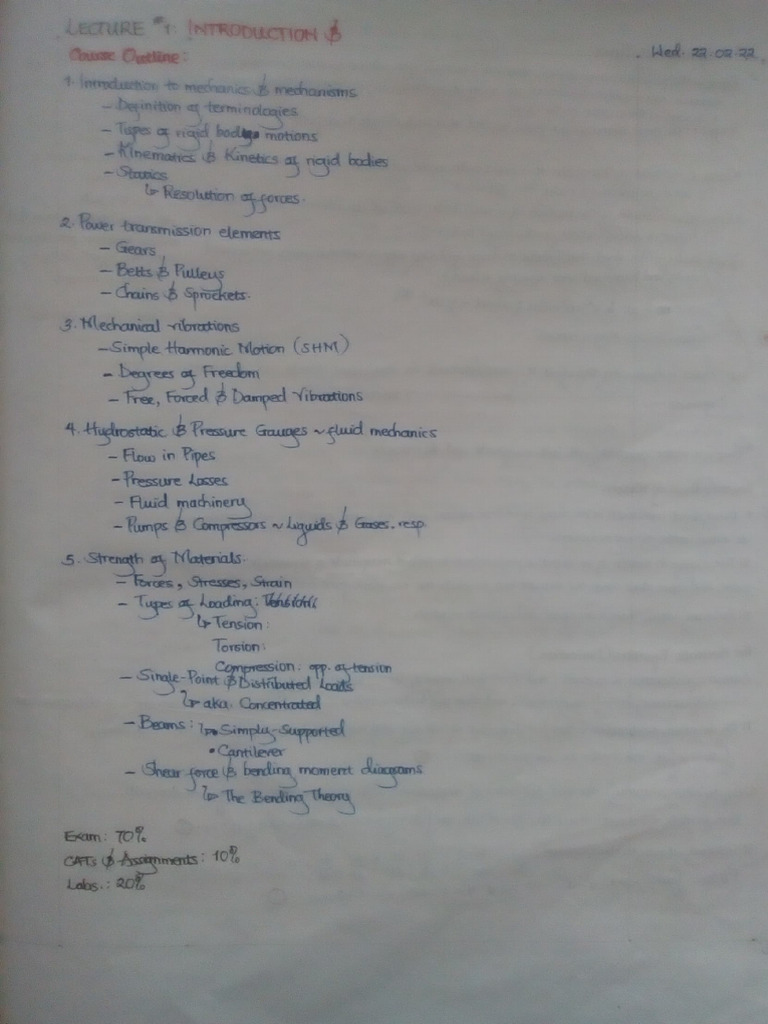 LECTURE #1: INTRODUCTION &
Course Outline:
Wed. 22.02.22.
1. Introduction to mechanics & mechanisms
- Definition of terminologies
- Types of rigid body motions
- Kinematics & Kinetics of rigid bodies
- Statics
↳ Resolution of forces.
2. Power transmission elements
- Gears
- Belts & Pulleys
- Chains & Sprockets.
3. Mechanical vibrations
- Simple Harmonic Motion (SHM)
- Degrees of Freedom
- Free, Forced & Damped Vibrations
4. Hydrostatic & Pressure Gauges ~ fluid mechanics
- Flow in Pipes
- Pressure Losses
- Fluid machinery
- Pumps & Compressors ~ Liquids & Gases. resp
5. Strength of Materials.
- Forces, Stresses, Strain
- Types of Loading:
↳ Tension:
Torsion:
Compression: opp. of tension
- Single-Point & Distributed Loads
↳ aka. Concentrated
- Beams: ↳ • Simply-Supported
• Cantilever
- Shear force & bending moment diagrams
↳ The Bending Theory
Exam: 70%
CATs & Assignments: 10%
Labs.: 20%